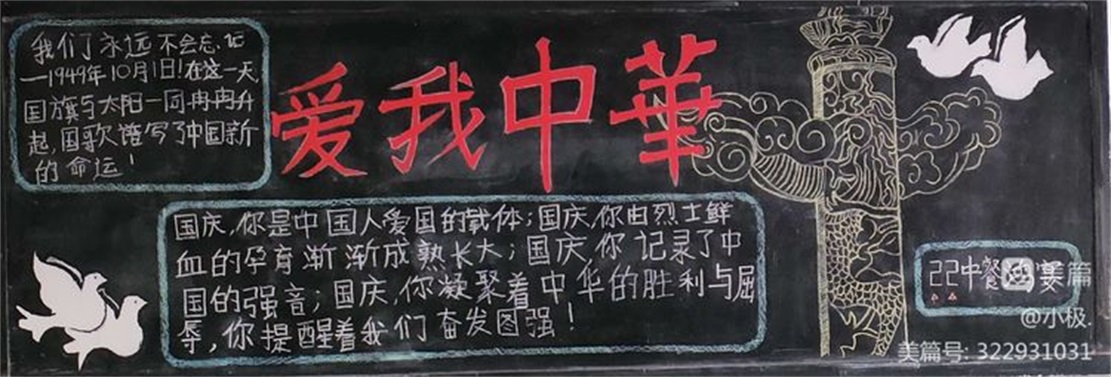 我们永远不会忘记
—1949年10月1日!在这一天,
国旗与太阳一同冉冉升
起,国歌谱写了中国新
的命运!
爱我中華
国庆,你是中国人爱国的载体;国庆,你由烈士鲜
血的孕育渐渐成熟长大;国庆,你记录了中
国的强音;国庆,你凝聚着中华的胜利与屈
辱,你提醒着我们奋发图强!
22中餐
美篇
@小极.
美篇号: 322931031